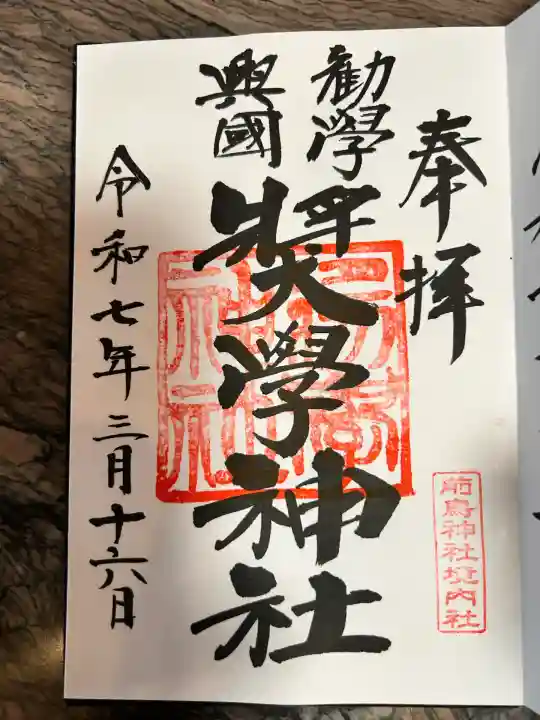 奉拝
勧學
興國
奨學神社
前鳥神社境内社
令和七年三月十六日